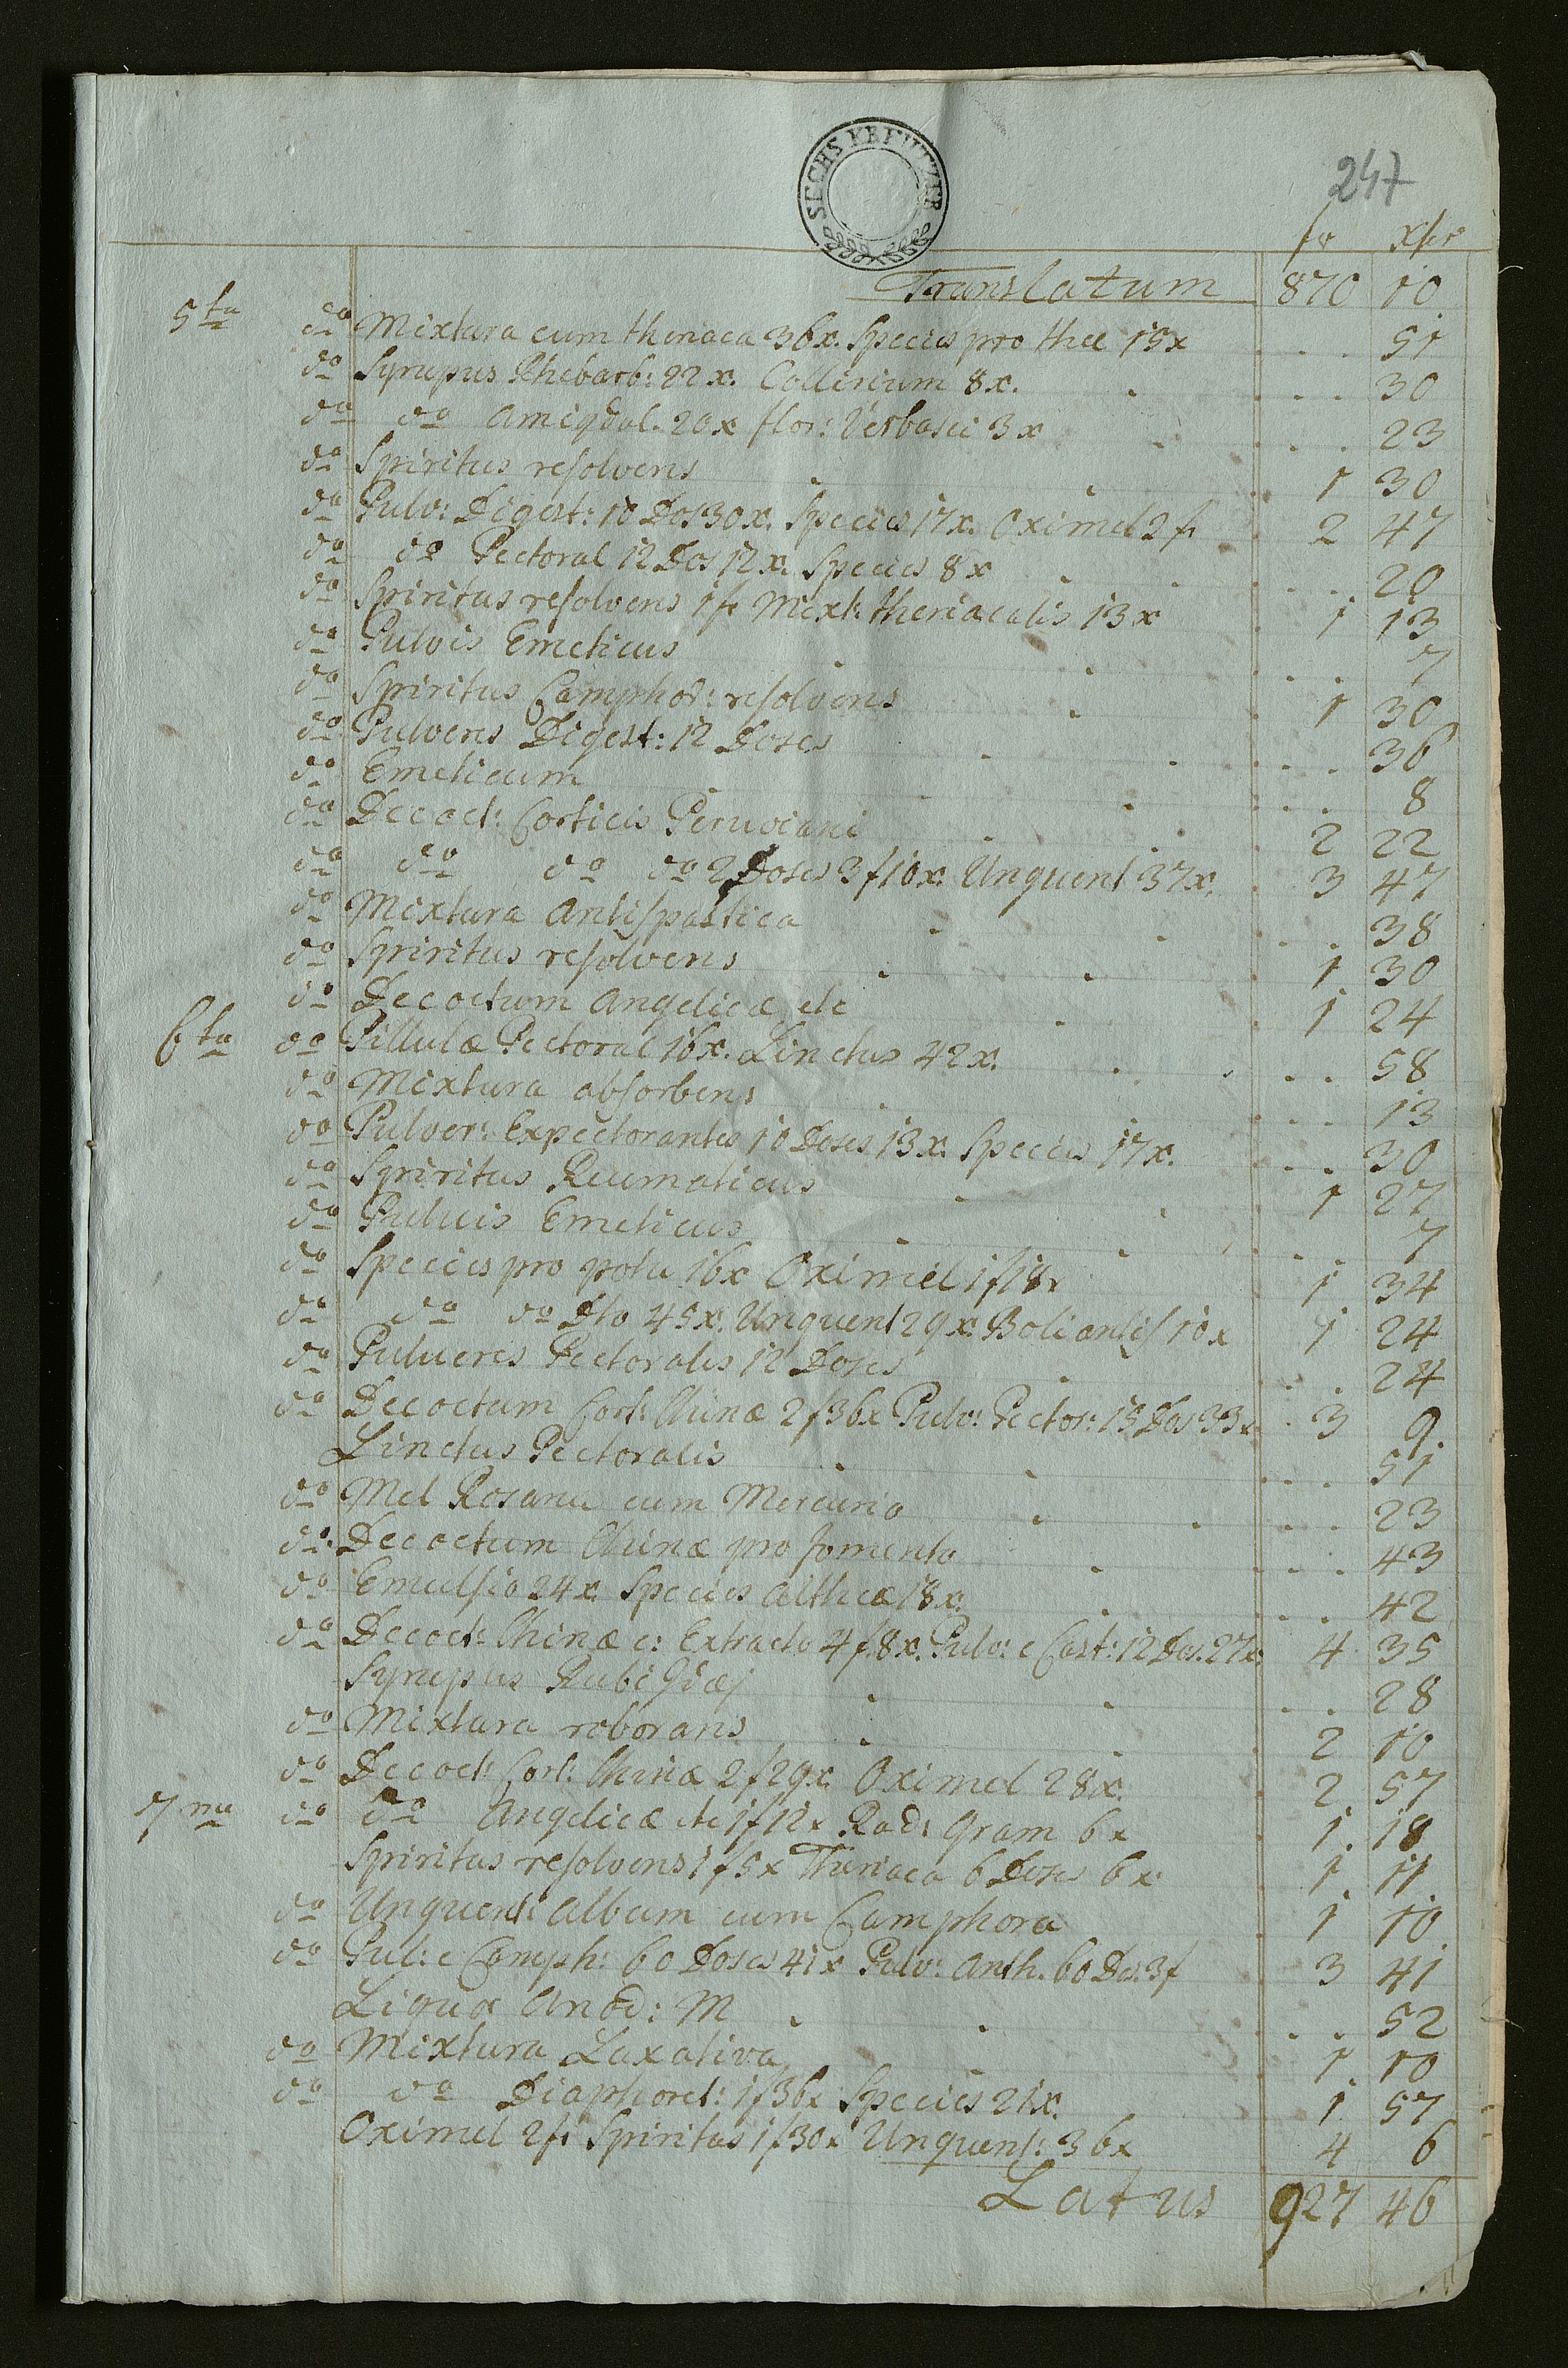 SECHS KREUTZER
247
fr Xfer
Translatum 870 10
5ta do Mixtura cum theriaca 36x. Species pro thee 15x . . . 51
do Syrupus Rhebarb: 22x. Collirium 8x. . . . 30
do do Amigdal. 20x flor: Verbasci 3x . . . 23
do Spiritus resolvens 1 30
do Pulv: Digest: 10 Dos 30x. Species 17x. Oximel 2f 2 47
do do Pectoral 12 Dos 12x. Species 8x . . . 20
do Spiritus resolvens 1f Mixt: theriacalis 13x 1 13
do Pulvis Emeticus . . . 7
do Spiritus Camphor: resolvens 1 30
do Pulveres Digest: 12 Doses . . . 36
do Emeticum . . . 8
do Decoct: Corticis Peruviani 2 22
do do do do 2 Doses 3f10x. Unguent 37x. 3 47
do Mixtura Antispastica . . . 38
do Spiritus resolvens 1 30
do Decoctum Angelicæ etc 1 24
6ta do Pillulæ Pectoral 16x. Linctus 42x. . . . 58
do Mixtura absorbens . . . 13
do Pulver: Expectorantes 10 Doses 13x. Species 17x. . . . 30
do Spiritus Reumaticus 1 27
do Pulvis Emeticus . . . 7
do Species pro potu 16x Oximel 1f18x 1 34
do do do Dto 45x. Unguent 29x. Boli antis 10x 1 24
do Pulveres Pectorales 12 Doses . . . 24
do Decoctum Cort: Chinæ 2f36x Pulv: Pector: 15 Dos 33x 3 9.
Linctus Pectoralis . . . 51
do Mel Rosarum cum Mercurio . . . 23
do. Decoctum Chinæ pro fomento . . . 43
do Emulsio 24x. Species altheæ 18x. . . . 42
do Decoct: Chinæ c: Extracto 4f.8x. Pulv: c Cast: 12 Dos. 27x. 4 35
Syrupus Rubi Idæj . . . 28
do Mixtura roborans 2 10
do Decoct: Cort: Chinæ 2f29x. Oximel 28x. 2 57
7ma do do Angelicæ etc 1f12x Rad: Gram 6x 1 18
Spiritus resolvens 1f5x Theriaca 6 Doses 6x. 1 11
do Unguent: album cum Camphora 1 10
do Pul: c Camph: 60 Doses 41x Pulv: Anth. 60 Do: 3f 3 41
Liquor Anod: M . . . 52
do Mixtura Laxativa 1 10
do do Diaphoret: 1f36x Species 21x. 1 57
Oximel 2f Spiritus 1f30x Unguent: 36x 4 6
Latus 927 46